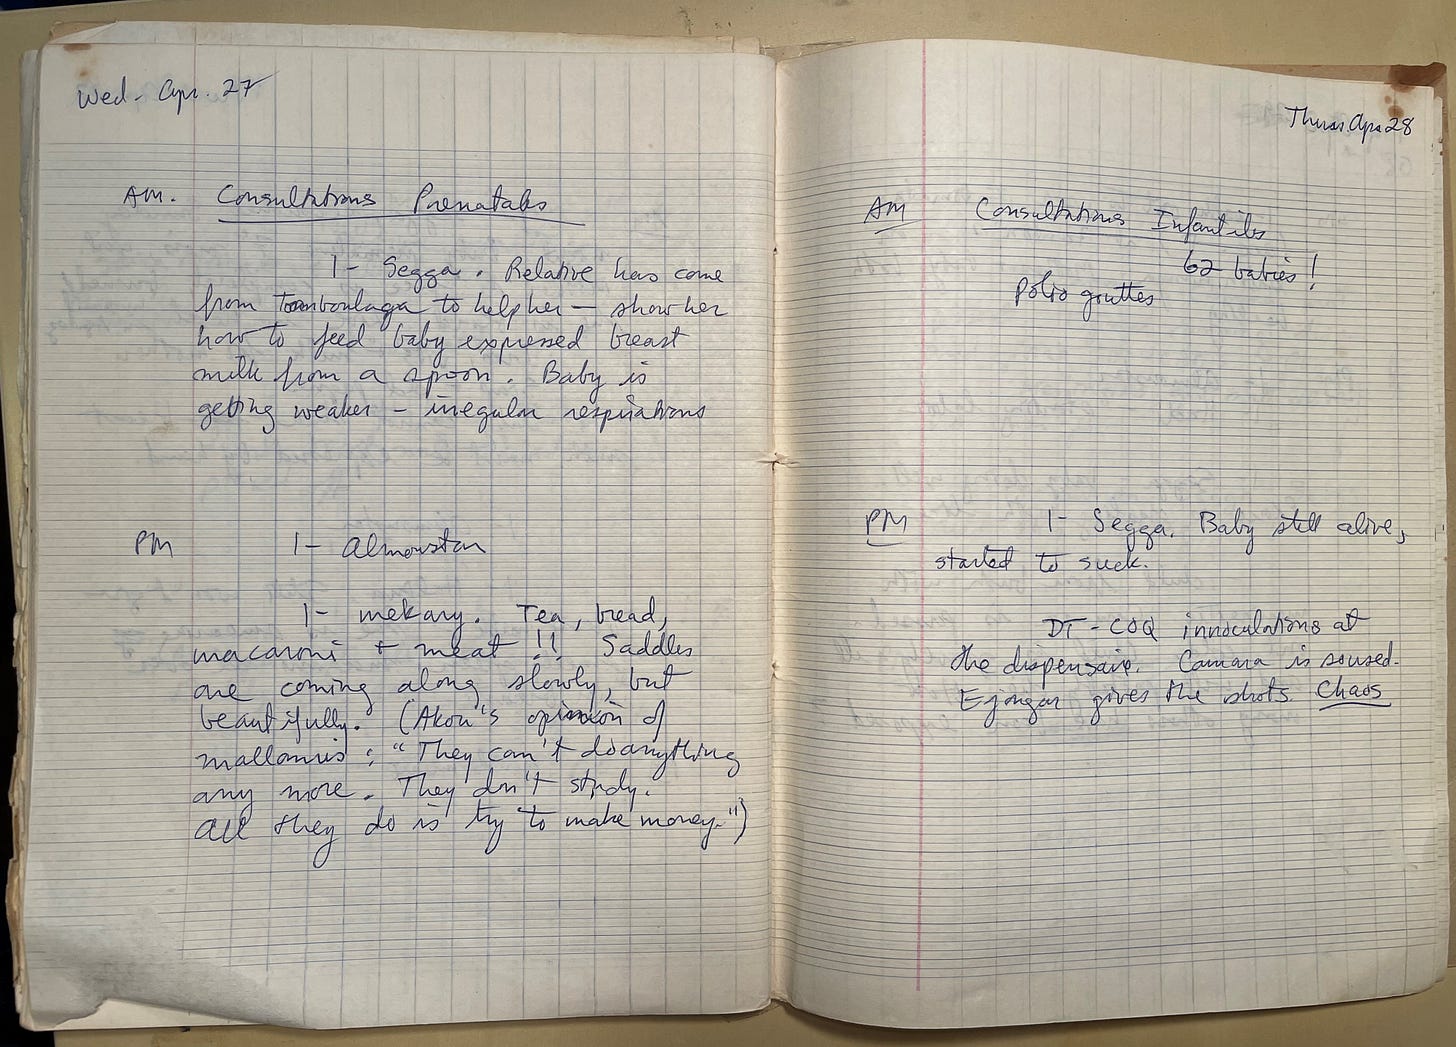 Wed - Apr. 27
AM. Consultations Prenatales
1- Segga. Relative has come
from Tomboulaga to help her — show her
how to feed baby expressed breast
milk from a spoon. Baby is
getting weaker - irregular respirations
PM 1- Almoustan
1- mekary. Tea, bread,
macaroni + meat !! Saddles
are coming along slowly, but
beautifully. (Akou's opinion of
mallamis: "They can't do anything
any more. They don't study.
All they do is try to make money.")
Thurs. Apr. 28
AM Consultations Infantiles
62 babies!
polio gouttes
PM 1- Segga. Baby still alive,
started to suck.
DT-COQ innoculations at
the dispensaire. Camara is soused.
Ejongar gives the shots. Chaos